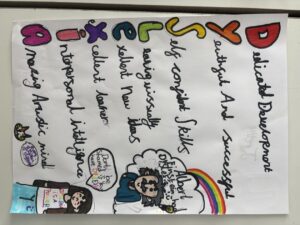 Dedicated Development
Youthful And successful
Self confident Skills
Learning visually
Excellent New Ideas
Xcellent learner
Interpersonal intelligence
Amazing Artistic mind